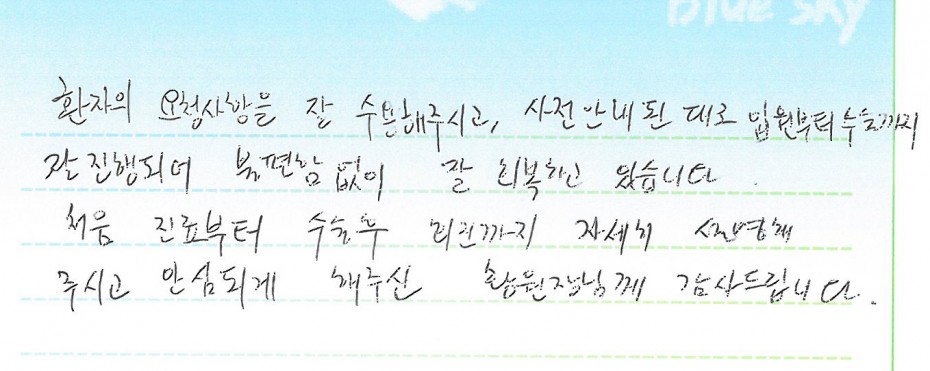 Blue sky
환자의 요청사항을 잘 수븐해주시고, 사전안내된 대로 입원부터수술까지
잘진행되어 불편함 없이 잘 회복하고 있습니다.
처음 진료부터 수술후 회진까지 자세히 설명해
주시고 안심되게 해주신 황원장님께 감사드립니다.